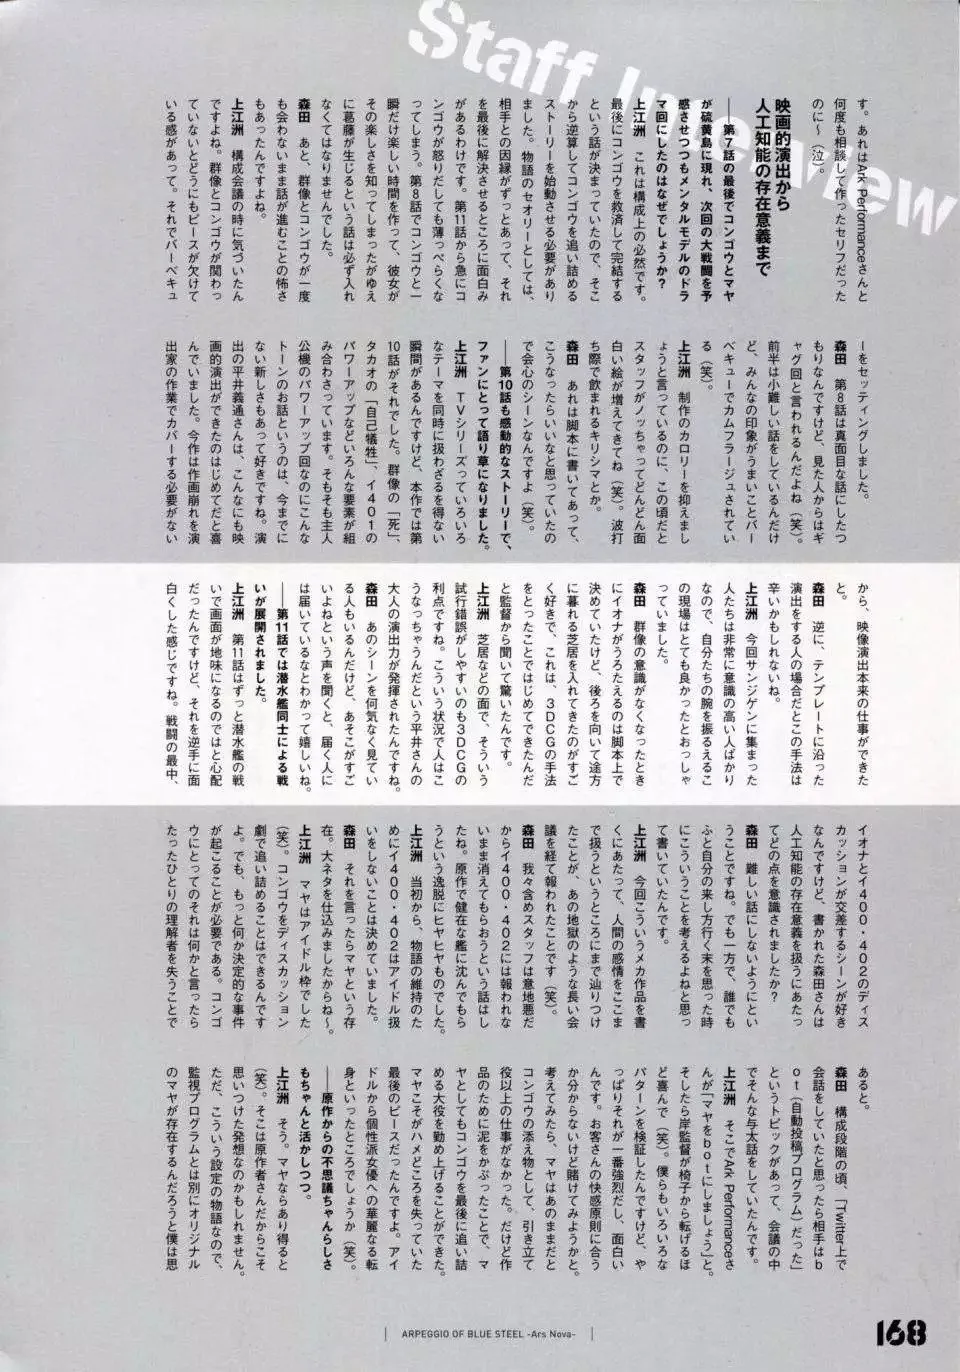 Staff Interview
す。あれはArk Performanceさんと
何度も相談して作ったセリフだった
のに〜（泣）。
映画的演出から
人工知能の存在意義まで
――第7話の最後でコンゴウとマヤ
が硫黄島に現れ、次回の大戦闘を予
感させつつもメンタルモデルのドラ
マ回にしたのはなぜでしょうか？
上江洲　これは構成上の必然です。
最後にコンゴウを救済して完結する
という話が決まっていたので、そこ
から逆算してコンゴウを追い詰める
ストーリーを始動させる必要があり
ました。物語のセオリーとしては、
相手との因縁がずっとあって、それ
を最後に解決させるところに面白み
があるわけです。第11話から急にコ
ンゴウが怒りだしても薄っぺらくな
ってしまう。第8話でコンゴウと一
瞬だけ楽しい時間を作って、彼女が
その楽しさを知ってしまったがゆえ
に葛藤が生じるという話は必ず入れ
なくてはなりませんでした。
森田　あと、群像とコンゴウが一度
も会わないまま話が進むことの怖さ
もあったんですよね。
上江洲　構成会議の時に気づいたん
ですよね。群像とコンゴウが関わっ
ていないとどうにもピースが欠けて
いる感があって。それでバーベキュ
ーをセッティングしました。
森田　第8話は真面目な話にしたつ
もりなんですけど、見た人からはギ
ャグ回と言われるんだよね（笑）。
前半は小難しい話をしているんだけ
ど、みんなの印象がうまいことバー
ベキューでカムフラージュされてい
る（笑）。
上江洲　制作のカロリーを抑えまし
ょうと言っているのに、この頃だと
スタッフがノッちゃってどんどん面
白い絵が増えてきてね（笑）。波打
ち際で飲まれるキリシマとか。
森田　あれは脚本に書いてあって、
こうなったらいいなと思っていたの
で会心のシーンなんですよ（笑）。
――第10話も感動的なストーリーで、
ファンにとって語り草になりました。
上江洲　TVシリーズっていろいろ
なテーマを同時に扱わざるを得ない
瞬間があるんですけど、本作では第
10話がそれでした。群像の「死」、
タカオの「自己犠牲」、イ401の
パワーアップなどいろんな要素が組
み合わさっています。そもそも主人
公機のパワーアップ回なのにこんな
トーンのお話というのは、今までに
ない新しさもあって好きですね。演
出の平井義通さんは、こんなにも映
画的演出ができたのはじめてだと喜
んでいました。今作は作画崩れを演
出家の作業でカバーする必要がない
から、映像演出本来の仕事ができた
と。
森田　逆に、テンプレートに沿った
演出をする人の場合だとこの手法は
辛いかもしれないね。
上江洲　今回サンジゲンに集まった
人たちは非常に意識の高い人ばかり
なので、自分たちの腕を振るえるこ
の現場はとても良かったとおっしゃ
っていました。
森田　群像の意識がなくなったとき
にイオナがうろたえるのは脚本上で
決めていたけど、後ろを向いて途方
に暮れる芝居を入れてきたのがすご
く好きで、これは、3DCGの手法
をとったことではじめてできたんだ
と監督から聞いて驚いたんです。
上江洲　芝居などの面で、そういう
試行錯誤がしやすいのも3DCGの
利点ですね。こういう状況で人はこ
うなっちゃうんだという平井さんの
大人の演出力が発揮されたんですね。
森田　あのシーンを何気なく見てい
る人もいるんだけど、あそこがすご
いよねという声を聞くと、届く人に
は届いているなとわかって嬉しいね。
――第11話では潜水艦同士による戦
いが展開されました。
上江洲　第11話はずっと潜水艦の戦
いで画面が地味になるのではと心配
だったんですけど、それを逆手に面
白くした感じですね。戦闘の最中、
イオナとイ400・402のディス
カッションが交差するシーンが好き
なんですけど、書かれた森田さんは
人工知能の存在意義を扱うにあたっ
てどの点を意識されましたか？
森田　難しい話にしないようにとい
うことですね。でも一方で、誰でも
ふと自分の来し方行く末を思った時
にこういうことを考えるよねと思っ
て書いていたんです。
上江洲　今回こういうメカ作品を書
くにあたって、人間の感情をここま
で扱うというところにまで辿りつけ
たことが、あの地獄のような長い会
議を経て報われたことです（笑）。
森田　我々含めスタッフは意地悪だ
からイ400・402には報われな
いまま消えてもらおうという話はし
たね。原作で健在な艦に沈んでもら
うという逸脱にヒヤヒヤものでした。
上江洲　当初から、物語の維持のた
めにイ400・402はアイドル扱
いをしないことは決めていました。
森田　それを言ったらマヤという存
在。大ネタを仕込みましたからね〜。
上江洲　マヤはアイドル枠でした
（笑）。コンゴウをディスカッション
劇で追い詰めることはできるんです
よ。でも、もっと何か決定的な事件
が起こることが必要である。コンゴ
ウにとってのそれは何かと言ったら
たったひとりの理解者を失うことで
あると。
森田　構成段階の頃、「Twitter上で
会話をしていたと思ったら相手はb
ot（自動投稿プログラム）だった」
というトピックがあって、会議の中
でそんな与太話をしていたんです。
上江洲　そこでArk Performanceさ
んが「マヤをbotにしましょう」と。
そしたら岸監督が椅子から転げるほ
ど喜んで（笑）。僕らもいろいろな
パターンを検証したんですけど、や
っぱりそれが一番強烈だし、面白い
んです。お客さんの快感原則に合う
か分からないけど賭けてみようかと。
考えてみたら、マヤはあのままだと
コンゴウの添え物として、引き立て
役以上の仕事がなかった。だけど作
品のために泥をかぶったことで、マ
ヤとしてもコンゴウを最後に追い詰
める大役を勤め上げることができた。
マヤこそがハメどころを失っていた
最後のピースだったんですよ。アイ
ドルから個性派女優への華麗なる転
身といったところでしょうか（笑）。
――原作からの不思議ちゃんらしさ
もちゃんと活かしつつ。
上江洲　そう。マヤならあり得ると
（笑）。そこは原作者さんだからこそ
思いつけた発想なのかもしれません。
ただ、こういう設定の物語なので、
監視プログラムとは別にオリジナル
のマヤが存在するんだろうと僕は思
ARPEGGIO OF BLUE STEEL -Ars Nova-
168